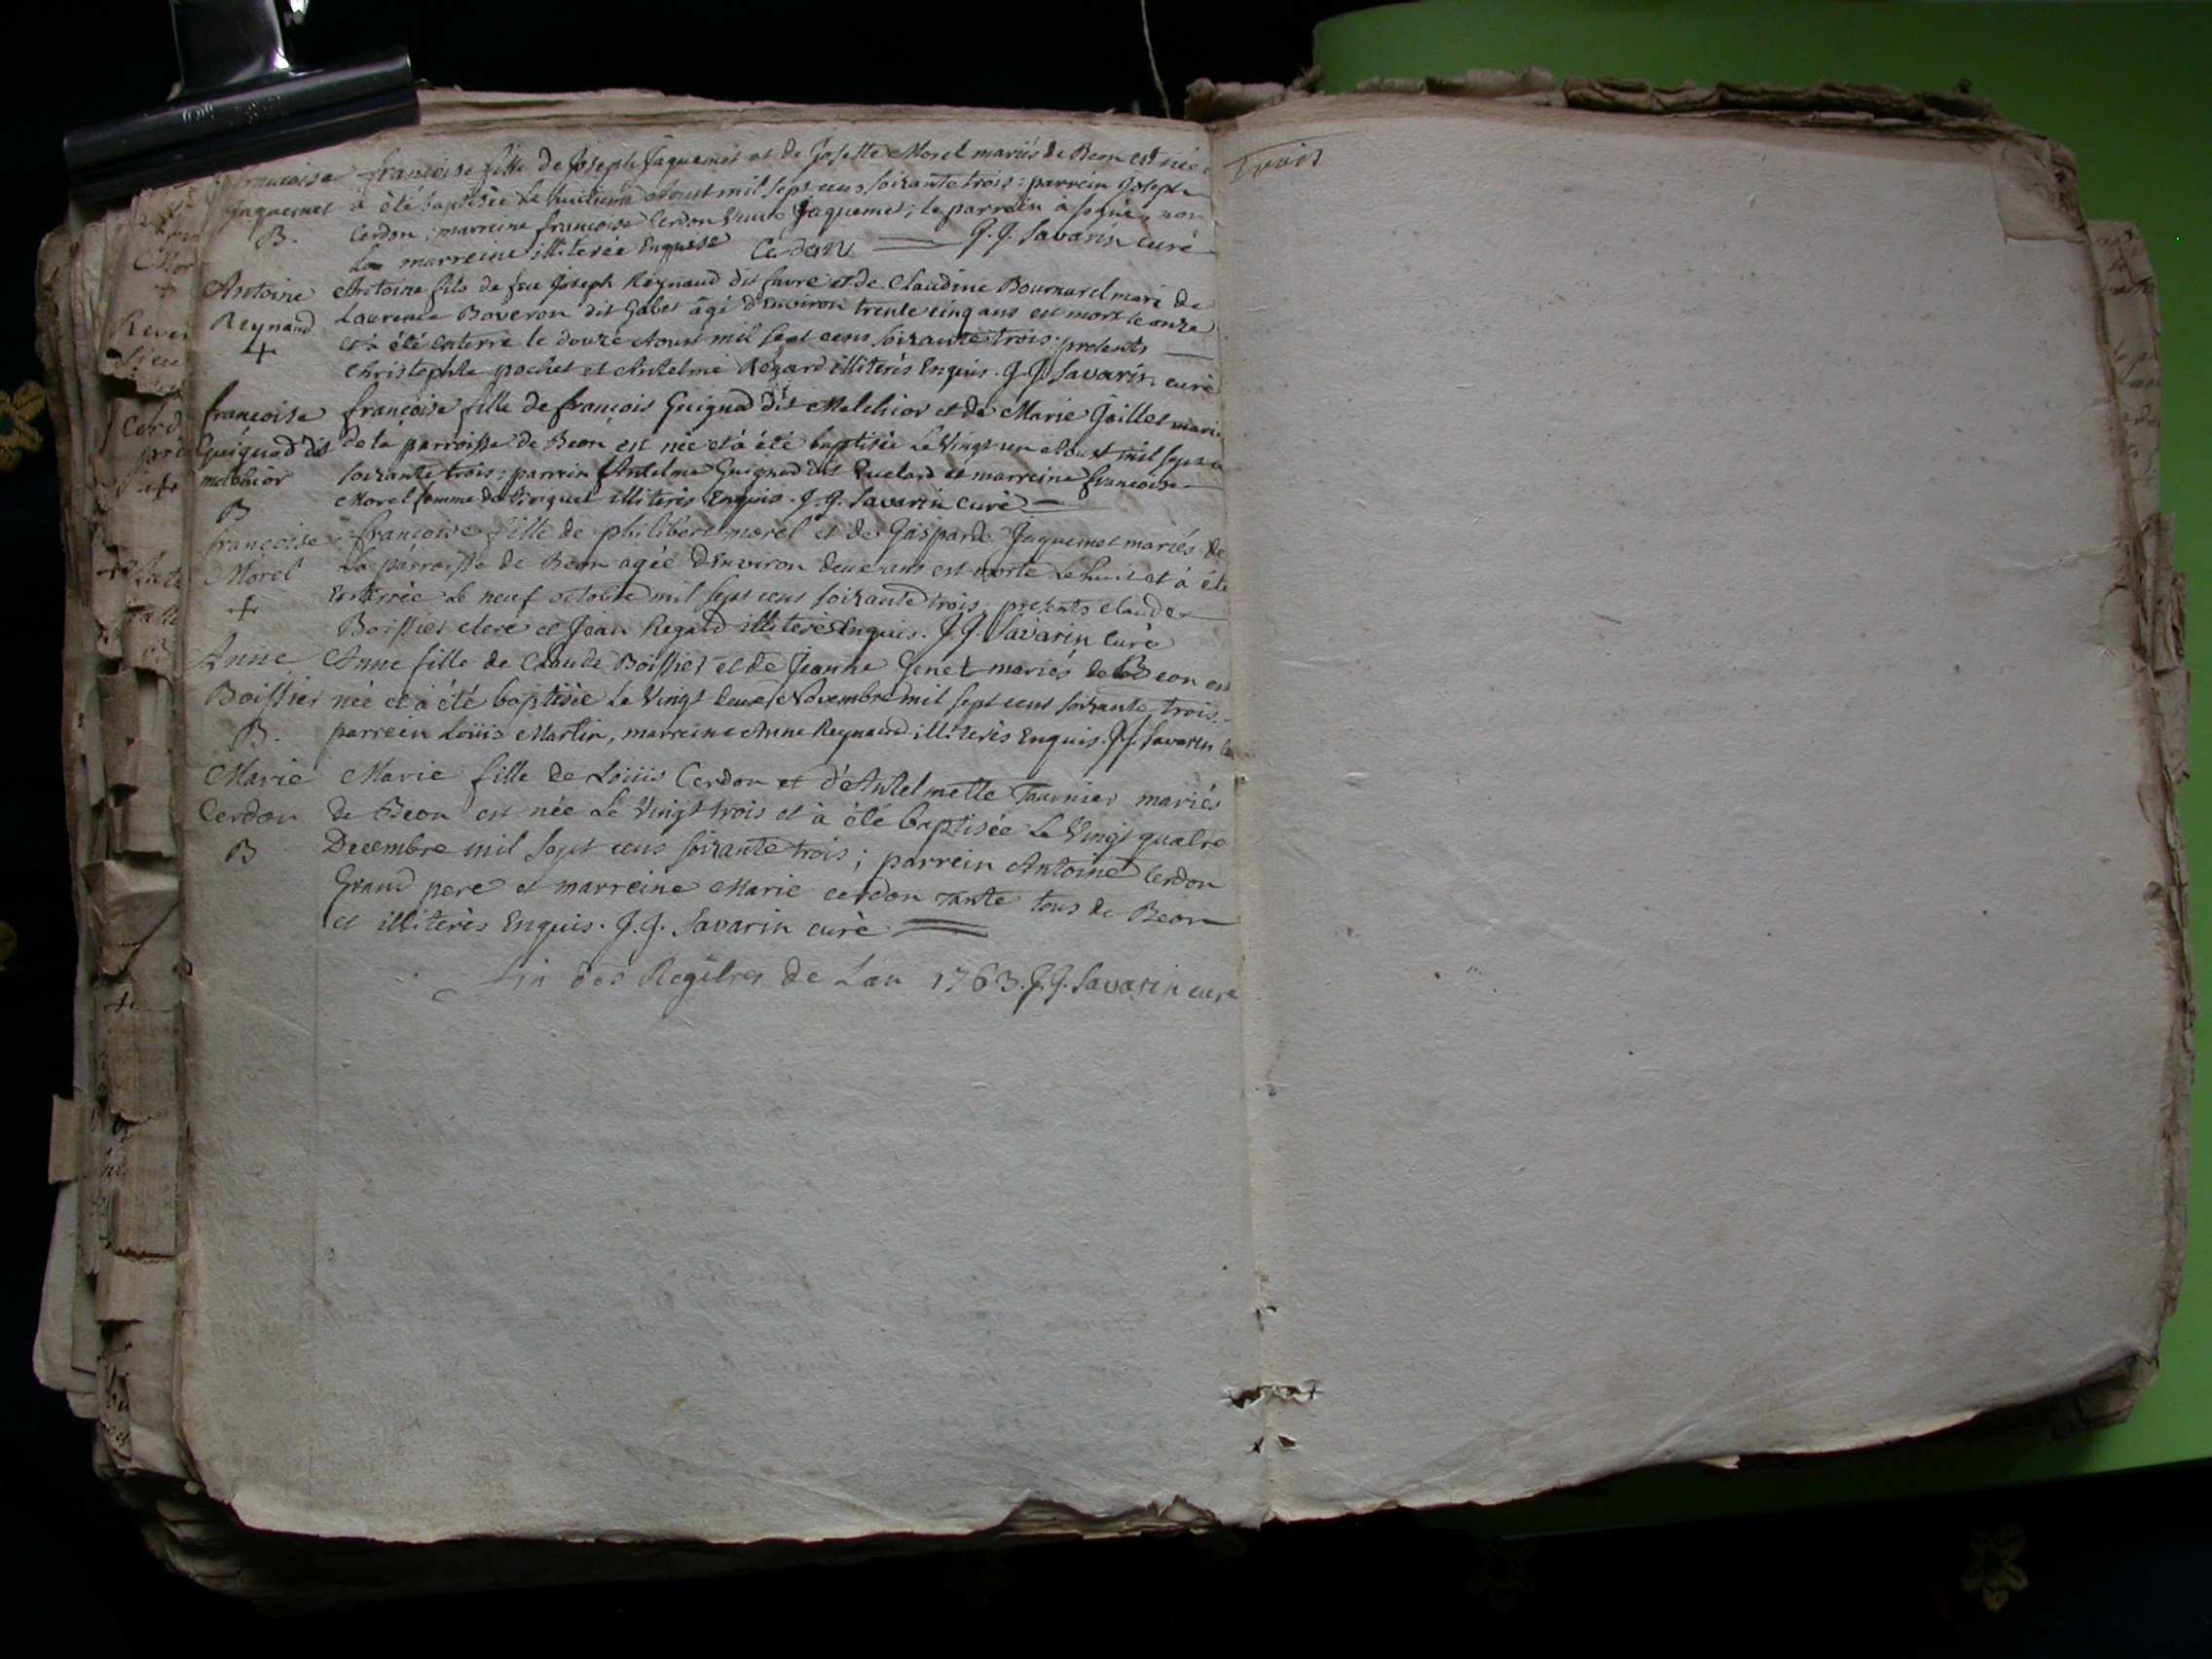 francoise francoise fille de Joseph Jaquemet et de Josette Morel mariés de Beon est née
Jaquemet à été baptisée Le huitieme Aoust mil sept cens soixante trois: parrein Joseph
B. Cerdon; marreine francoise Cerdon Jaquemet; le parrein à signé, non
La marreine illiterée Enquise Cerdon J.J. Savarin curé
Antoine Antoine fils de feu Joseph Reynaud dit faure et de Claudine Bournard mari de
Reynaud Laurence Boveron dit Gabet âgé d'Environ trente cinq ans est mort le onze
+ et à été enterré le douze Aoust mil sept cens soixante trois: presents
Christophle pochet et Antelme Regard illiterés Enquis. J.J. Savarin curé
francoise francoise fille de francois Guignod dit Melchior et de Marie Gaillet mariés
Guignod dit de la parroisse de Beon est née et à été baptisée Le Vingt un Aoust mil sept
melchior soixante trois; parrein Antelme Guignod dit et marreine francoise
B Morel femme de illiterés Enquis. J.J. Savarin curé
françoise françoise fille de philibert morel et de Gasparde Jaquemet mariés de
Morel La parroisse de Beon agée d'Environ deux ans est morte Le huit et à été
+ Enterrée Le neuf octobre mil sept cens soixante trois, presents claude
Boissier clerc et Jean Regard illiterés Enquis. J.J. Savarin curé
Anne Anne fille de Claude Boissier et de Jeanne Genet mariés de Beon est
Boissier née et à été baptisée Le Vingt deux Novembre mil sept cens soixante trois.
B. parrein Loüis Martin, marreine Anne Reynaud illiterés Enquis. J.J. Savarin
Marie Marie fille de Loüis Cerdon et d'Antelmette Tournier mariés
Cerdon de Beon est née Le Vingt trois et à été baptisée Le Vingt quatre
B Decembre mil sept cens soixante trois; parrein Antoine Cerdon
Grand pere et marreine Marie cerdon Tante tous de Beon
et illiterés Enquis. J.J. Savarin curé
fin des Regîtres de Lan 1763. J.J. Savarin curé